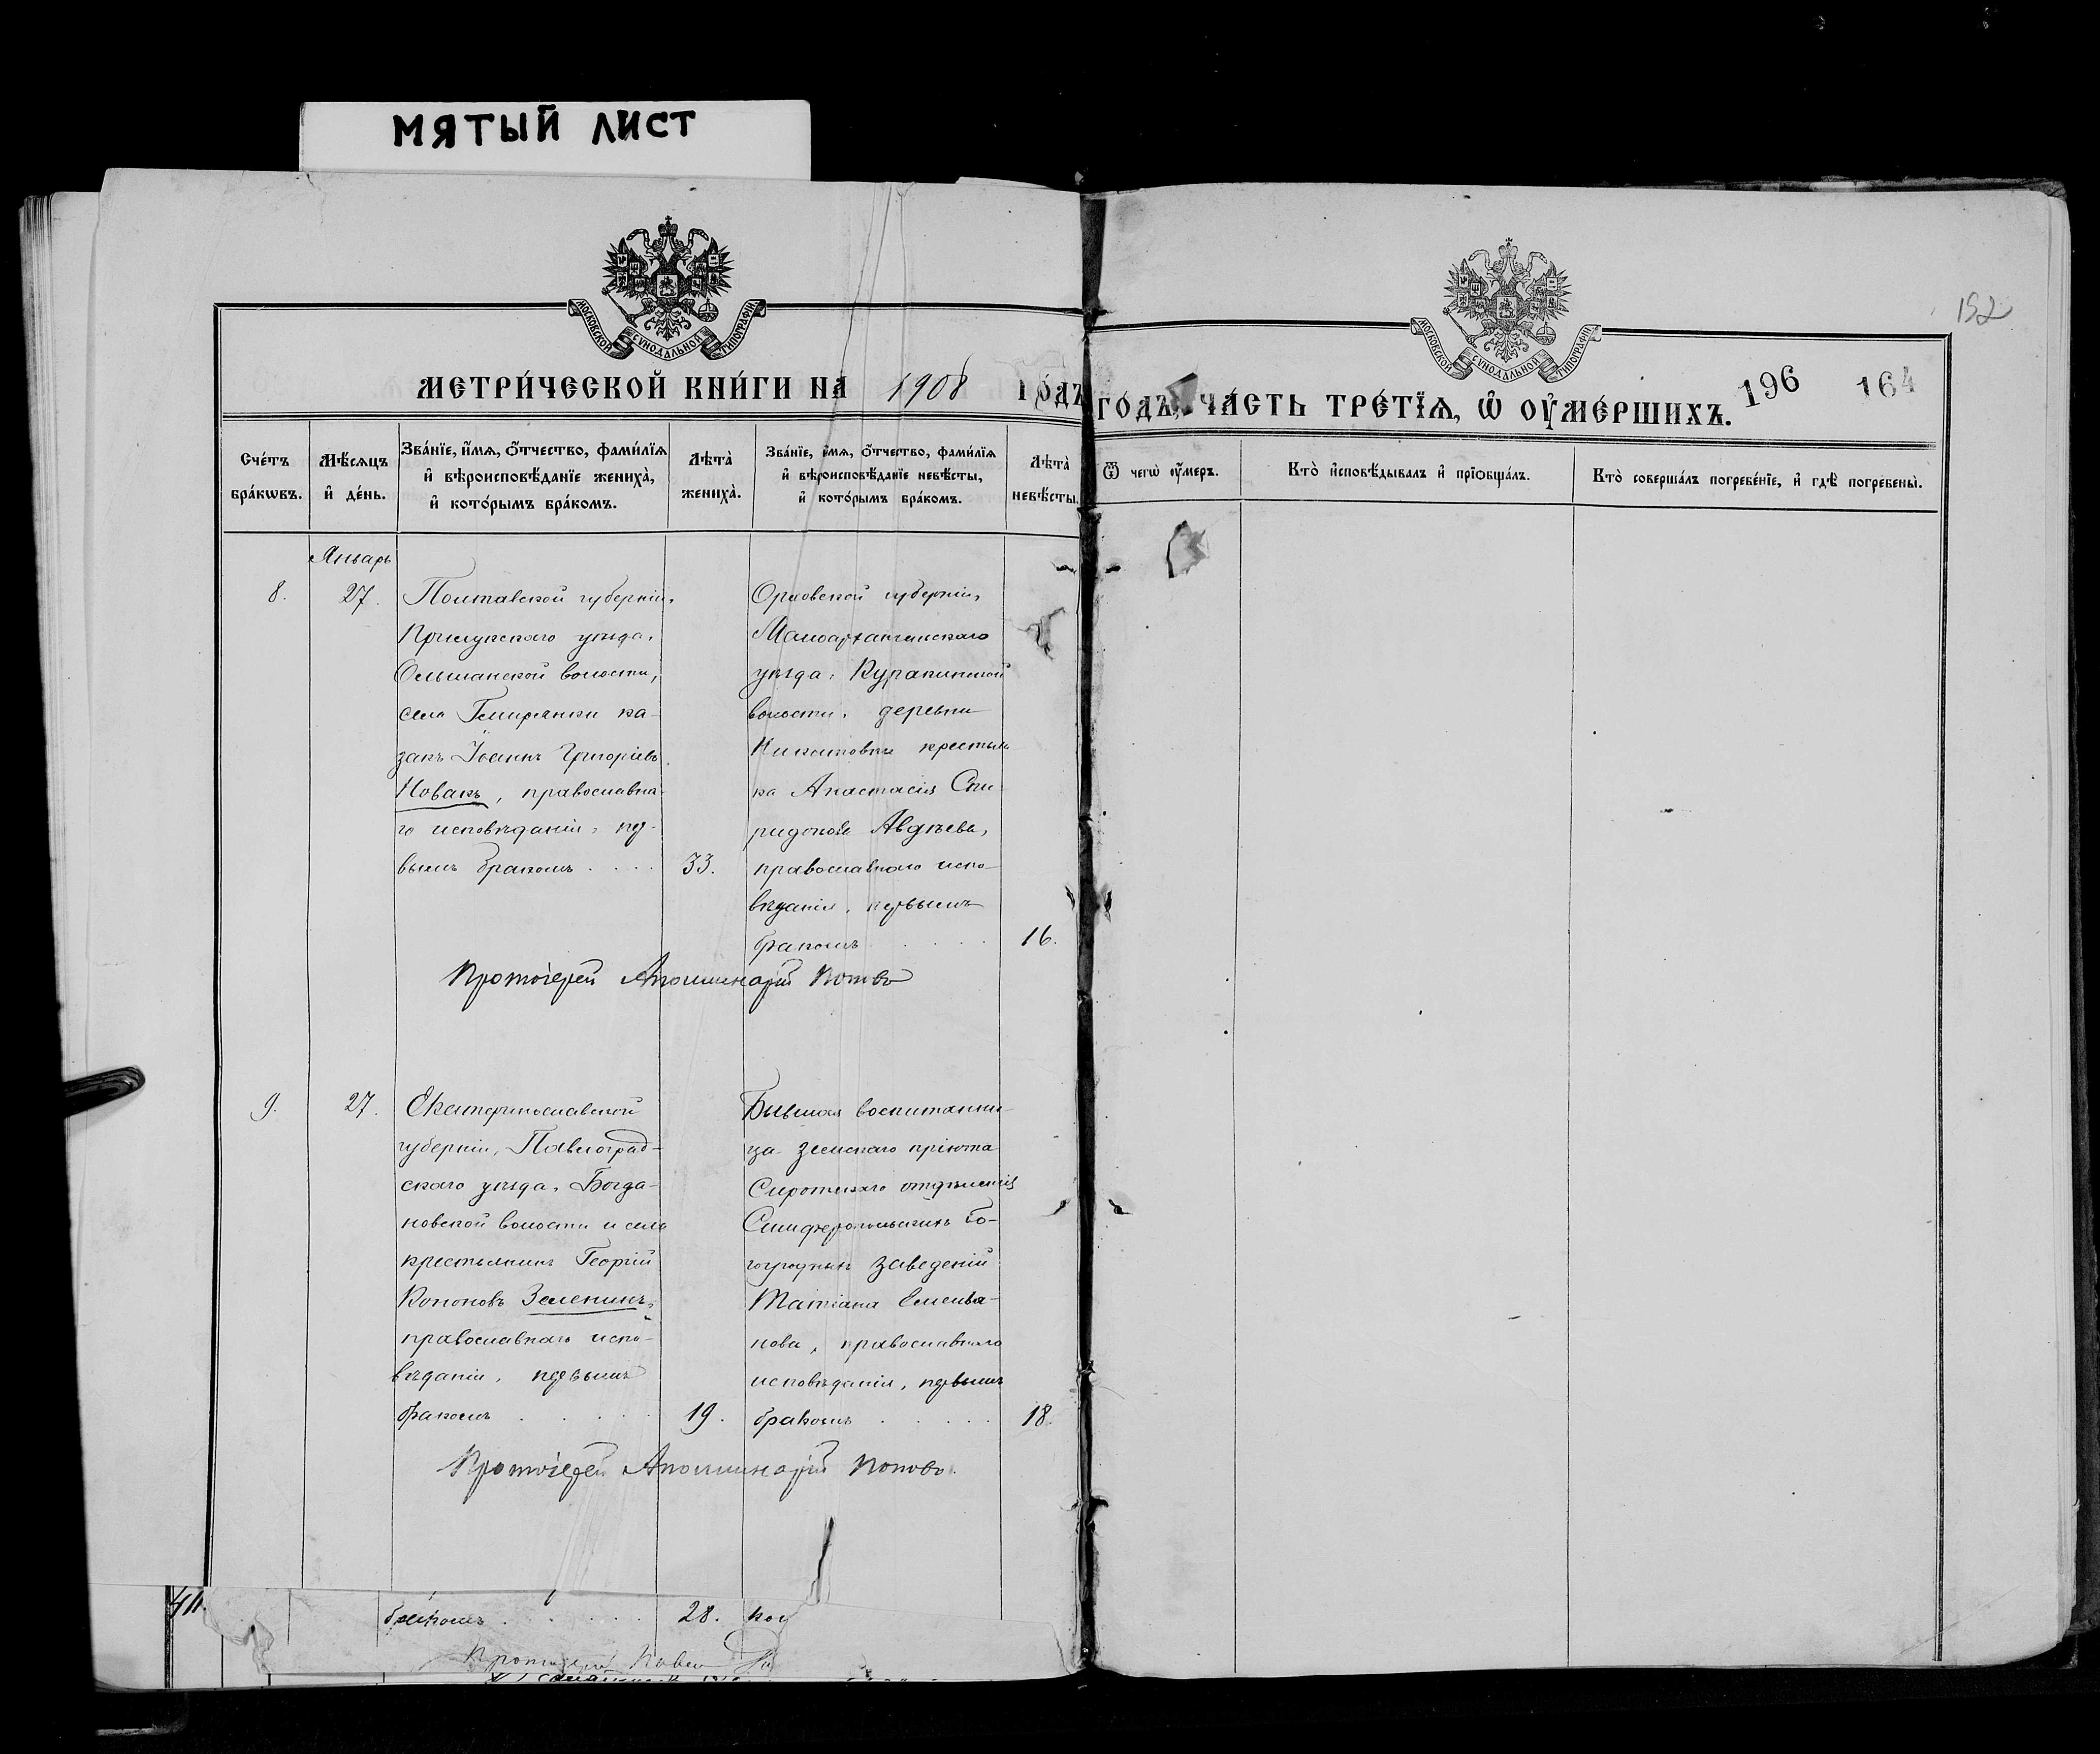 МЯТЫЙ ЛИСТ
МОСКОВСКОЙ СУНОДАЛЬНОЙ ТИПОГРАФІИ
МЕТРИ́ЧЕСКОЙ КНИ́ГИ НА 1908 ГО́ДЪ
Сче́тъ бра́кωвъ.
Мѣ́сяцъ и҆ де́нь.
Зва́нїе, и҆́мѧ, ѻ҆́тчество, фами́лїѧ
и҆ вѣроисповѣ́данїе жениха̀,
и҆ кото́рымъ бра́комъ.
Лѣта̀ жениха̀.
Зва́нїе, и҆́мѧ, ѻ҆́тчество, фами́лїѧ
и҆ вѣроисповѣ́данїе невѣ́сты,
и҆ кото́рымъ бра́комъ.
Лѣта̀ невѣ́сты.
Январь
8.
27.
Полтавской губерніи,
Прилукскаго уѣзда,
Ольшанской волости,
села Гмирянки ка-
закъ Іоаннъ Григоріевъ
Новакъ, православна-
го исповѣданія, пер-
вымъ бракомъ . . . .
33.
Орловской губерніи,
Малоархангельскаго
уѣзда, Куракинской
волости, деревни
крестьян
ка Анастасія Спи
ридонова Авдѣева,
православнаго испо-
вѣданія, первымъ
бракомъ . . . .
16.
Протоіерей Аполлинарій Поповъ
9.
27.
Екатеринославской
губерніи, Павлоград-
скаго уѣзда, Богда-
новской волости и села
крестьянинъ Георгій
Кононовъ Зеленинъ,
православнаго испо-
вѣданія, первымъ
бракомъ . . . . .
19.
Бывшая воспитанни-
ца земскаго пріюта
Сиротскаго отдѣленія
Симферопольскихъ бо-
гоугодныхъ заведеній
Татіана Емелья-
нова, православнаго
исповѣданія, первымъ
бракомъ . . . . .
18.
Протоіерей Аполлинарій Поповъ.
бракомъ . . . . . .
28.
МОСКОВСКОЙ СУНОДАЛЬНОЙ ТИПОГРАФІИ
152
ГО́ДЪ, ЧА́СТЬ ТРЕ́ТЇѦ, Ѽ ОУ҆МЕ́РШИХЪ.
196
164
Ѿ чегѡ̀ оу҆́меръ.
Кто̀ и҆сповѣ́дывалъ и҆ прїобща́лъ.
Кто̀ соверша́лъ погребе́нїе, и҆ гдѣ̀ погребены̀.